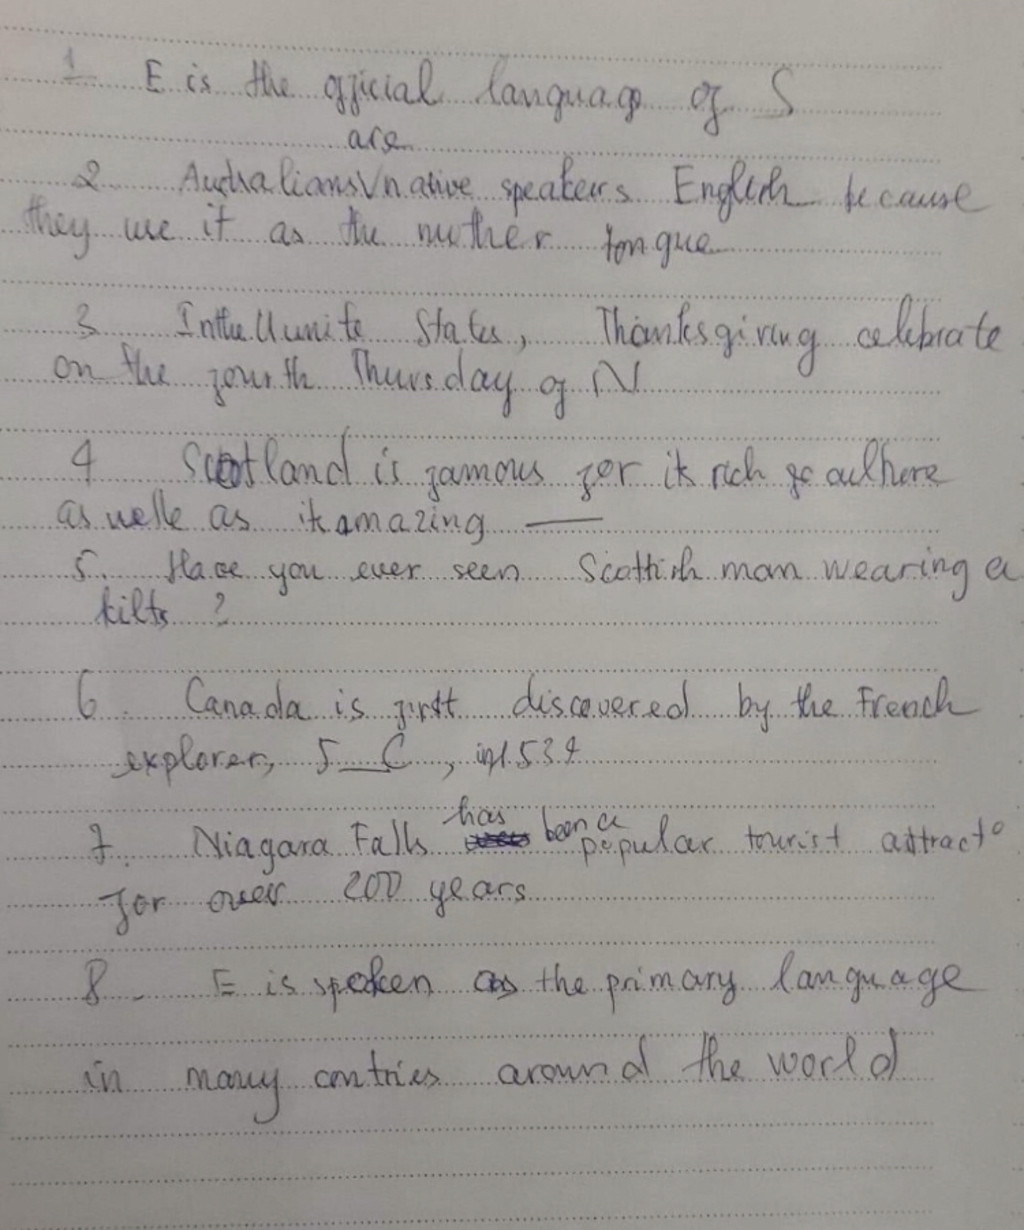 1 E is the official language of S
are
2 Australians native speakers English because
they use it as the mother tongue
3 In the Uunite States, Thanksgiving celebrate
on the fourth Thursday of N
4 Scotland is famous for its rich culture
as welle as its amazing
5. Have you ever seen Scottish man wearing a
kilts ?
6. Canada is first discovered by the French
explorer, J C, in 1534
has been a
7. Niagara Falls popular tourist attract
for over 200 years
8 - E is spoken as the primary language
in many contries around the world